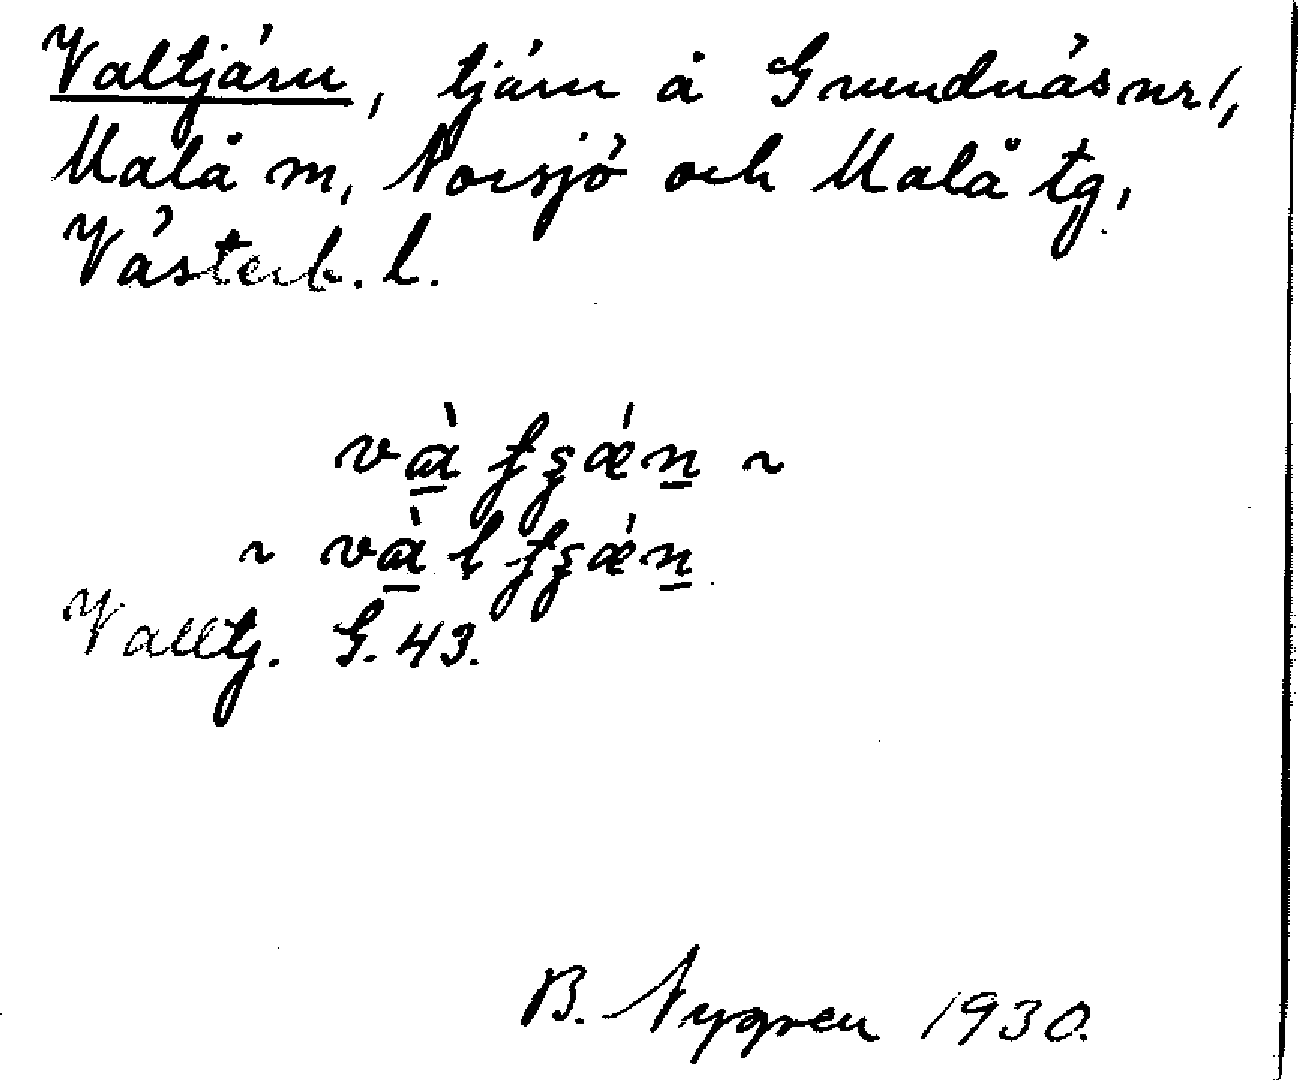 Valtjärn, tjärn å Grundnäs nr 1,
Malå m, Norsjö och Malå tg,
Västerb. l.
Valltj. G. 43.
B. Nygren 1930.